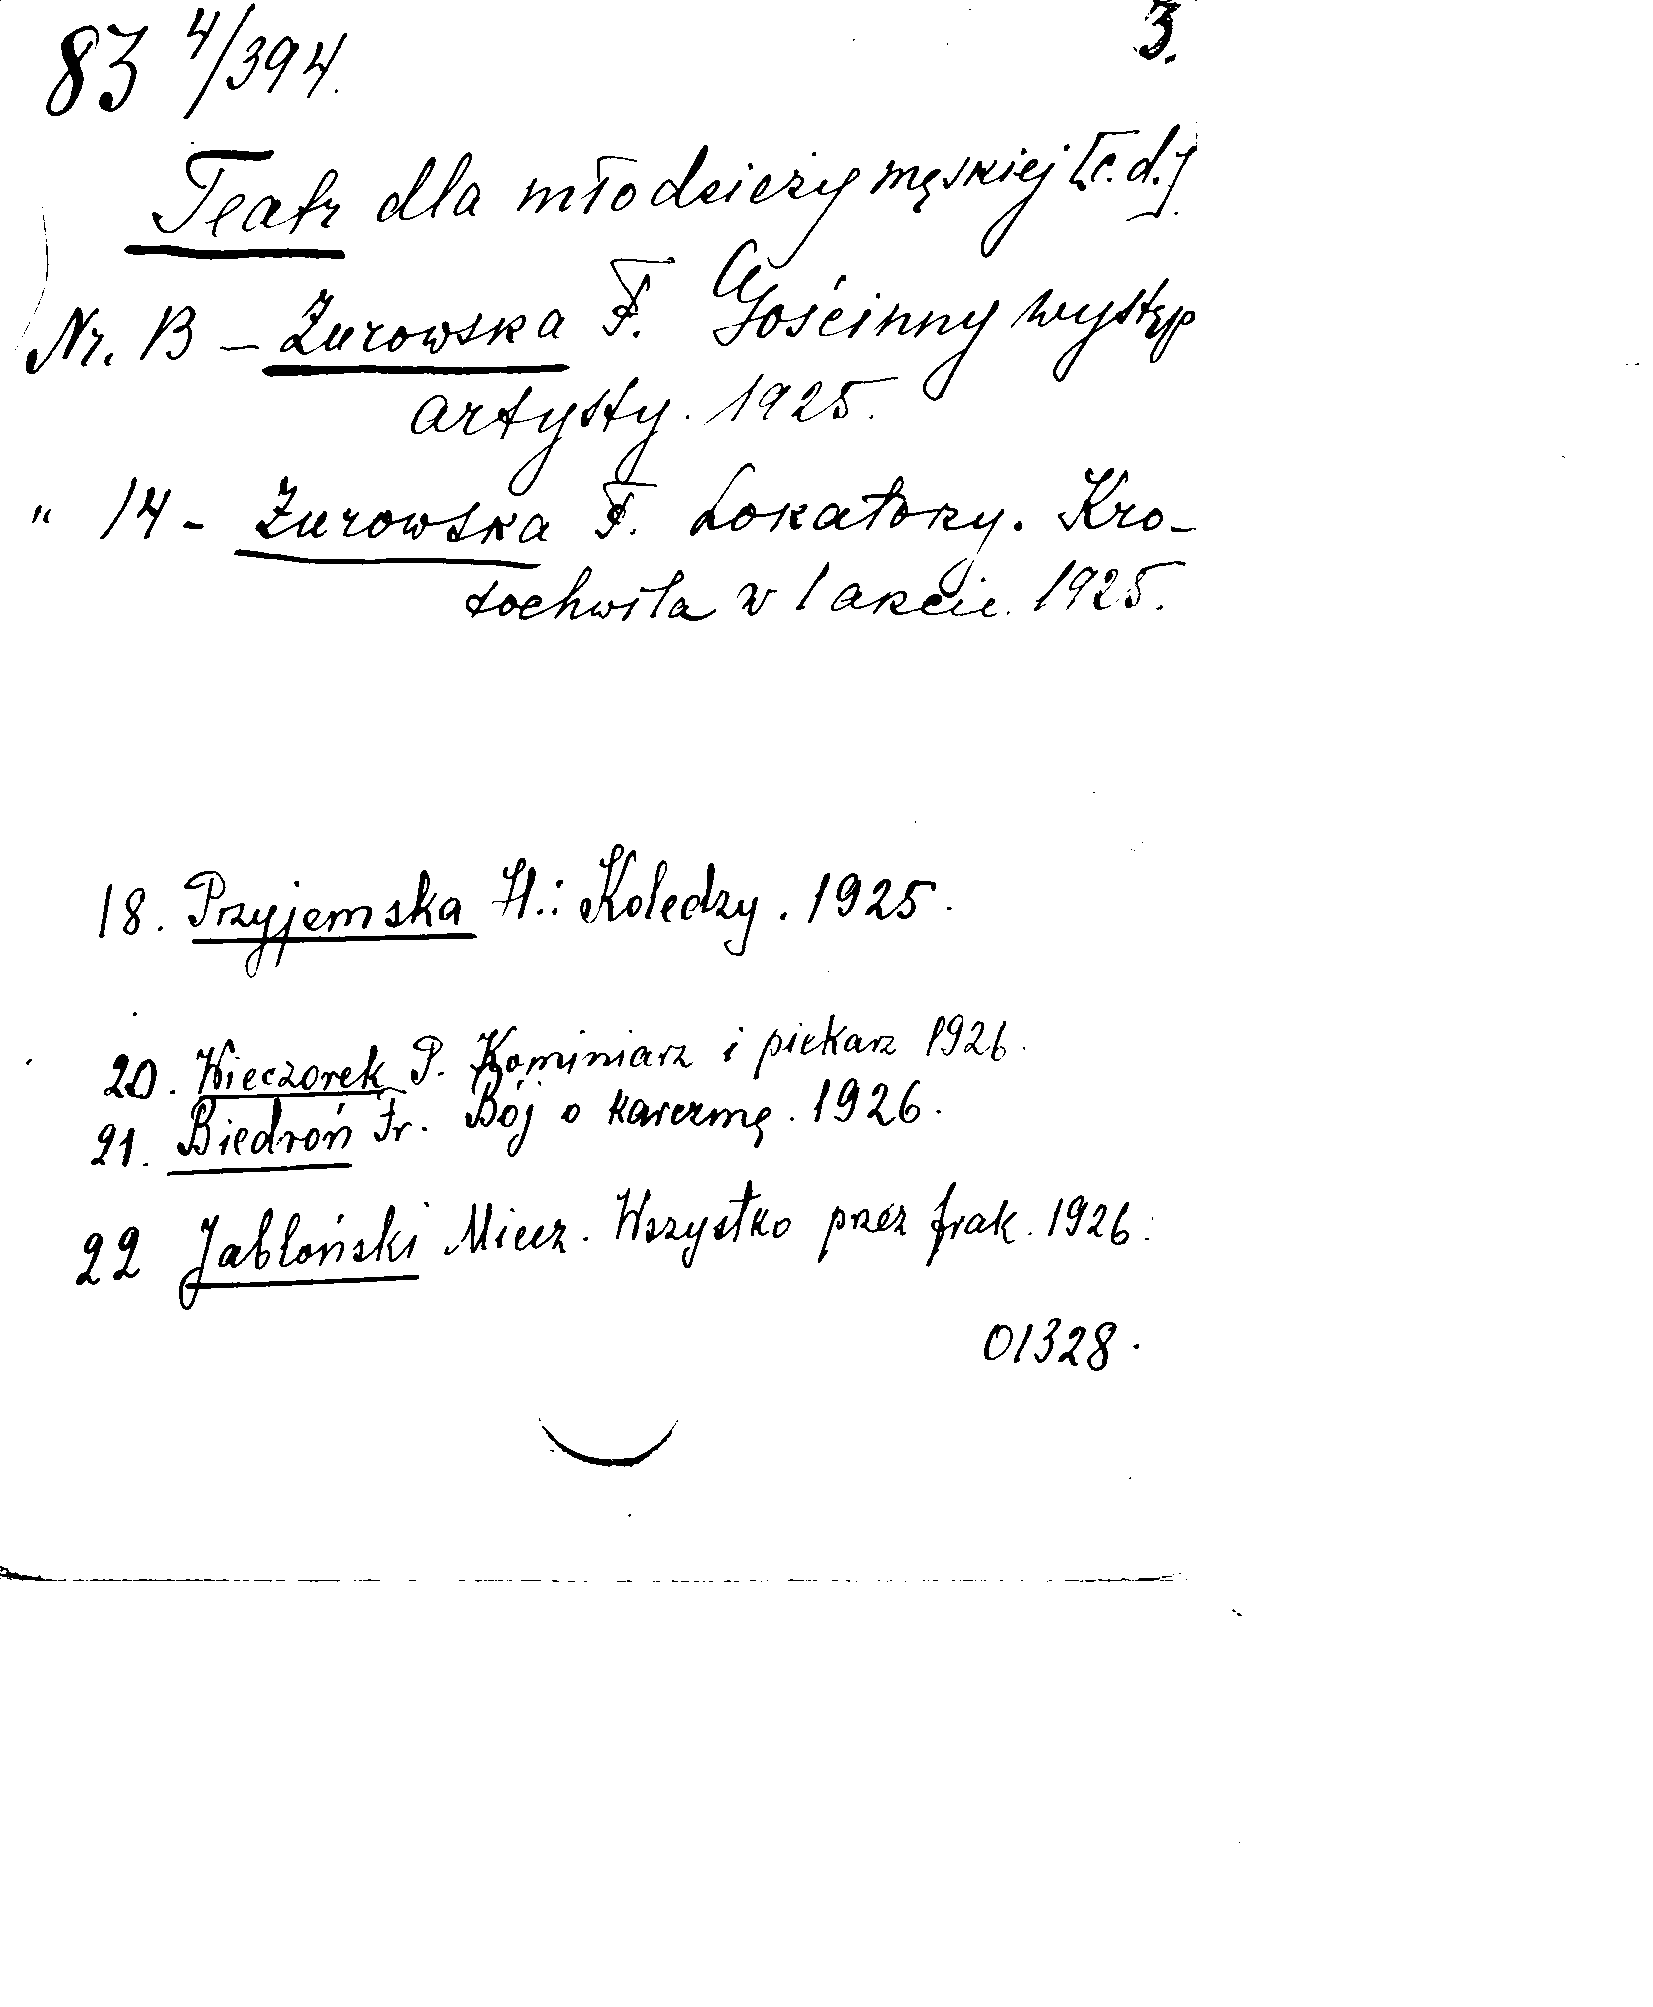 83 4/394. 3.
Teatr dla młodzieży męskiej [c.d.]
Nr. 13 - Żurowska F. Gościnny występ
artysty. 1925.
" 14 - Żurowska F. Lokatorzy. Kro-
tochwila w 1 akcie. 1925.
18. Przyjemska H.: Koledzy. 1925.
20. Wieczorek P. Kominiarz i piekarz 1926.
21. Biedroń Fr. Bój o karczmę. 1926.
22 Jabłoński Miecz. Wszystko przez frak. 1926.
01328.